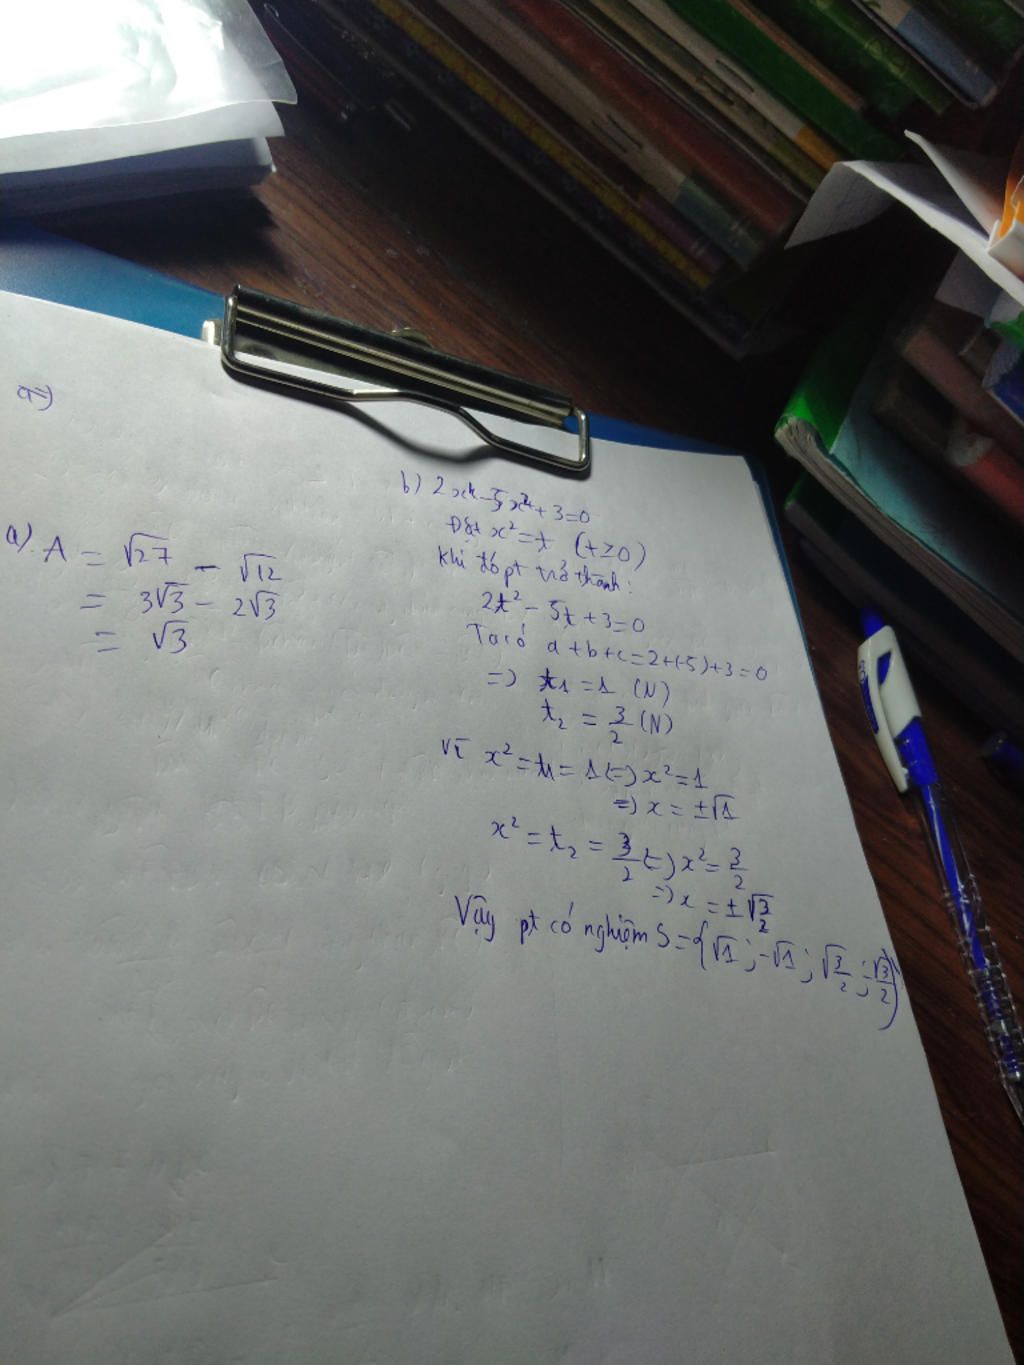 a)
a). A = √27 - √12
= 3√3 - 2√3
= √3
b) 2x⁴ - 5x² + 3 = 0
Đặt x² = t (t ≥ 0)
Khi đó pt trở thành:
2t² - 5t + 3 = 0
Ta có a + b + c = 2 + (-5) + 3 = 0
=> t₁ = 1 (N)
t₂ = 3/2 (N)
Vì x² = t₁ = 1 (=) x² = 1
=> x = ±√1
x² = t₂ = 3/2 (=) x² = 3/2
=> x = ±√3/2
Vậy pt có nghiệm S = {√1; -√1; √3/2; -√3/2}